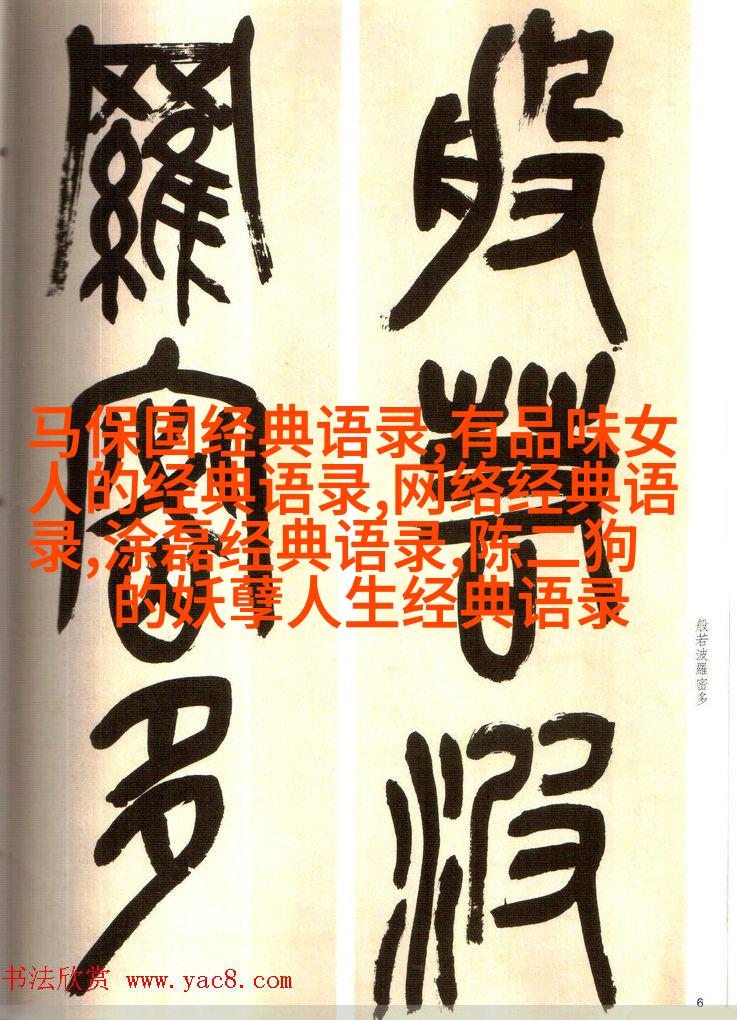 般若波
羅密多
马保国经典语录,有品味女
人的经典语录,网络经典语
录,涂磊经典语录,陈二狗
的妖孽人生经典语录
般若波羅密多
书法欣赏 www.yac8.com
6